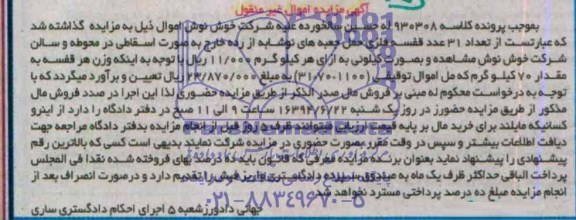 آگهی مزایده اموال غیر منقول
بموجب پرونده کلاسه ۹۳۰۳۰۸ له حسین سالخورده علیه شرکت خوش نوش اموال ذیل به مزایده گذاشته شد
که عبارتست از تعداد ۳۱ عدد قفسه فلزی حمل جعبه های نوشابه از رده خارج به صورت اسقاطی در محوطه و سالن
شرکت خوش نوش مشاهده و بصورت کیلوئی به ازای هر کیلو گرم ۱۱/۰۰۰ ریال با توجه به اینکه وزن هر قفسه به
مقدار ۷۰ کیلو گرم که مل اموال توقیفی (۱۱۰۰-۷۰-۳۱) به مبلغ ۲۳/۸۷۰/۰۰۰ ریال تعیین و برآورد میگردد که با
توجه به درخواست محکوم له مبنی بر فروش مال صدر الذکر از طریق مزایده حضوری لذا این اجرا در صدد فروش مال
مذکور از طریق مزایده حضورز در روز یک شنبه ۱۶۳۹۴/۶/۲۲ ساعت ۹ الی ۱۱ صبح در دفتر دادگاه را دارد از اینرو
کسانیکه مایلند برای خرید مال بر پایه قیمت ارزیابی میتوانند ظرف ۵ روز قبل از انجام مزایده بدفتر دادگاه مراجعه جهت
دیافت اطلاعات بیشتر و سپس در وقت مقرر بصورت حضوری در مزایده شرکت نمایند بدیهی است کسی که بالاترین رقم
پیشنهادی را پیشنهاد نماید بعنوان برنده مزایده معرفی که قانون باید ده درصد بهای فروخته شده نقدا فی المجلس
پرداخت الباقی حداکثر ظرف یک ماه به صندوق سپرده دادگستری واریز فیش را تقدیم دارد و در صورت انصراف بعد از
انجام مزایده مبلغ ده درصد پرداختی مسترد نخواهد شد
۰۲۱-۸۸۳۴۹۶۷۰-۵
جهانی دادورز شعبه ۵ اجرای احکام دادگستری ساری